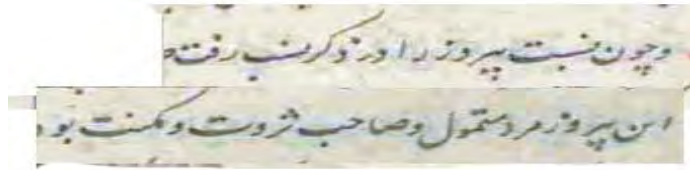 وچون نسبت پیروز را در ذکر نسب رفت
این پیروز مرد متمول وصاحب ثروت و مکنت بود